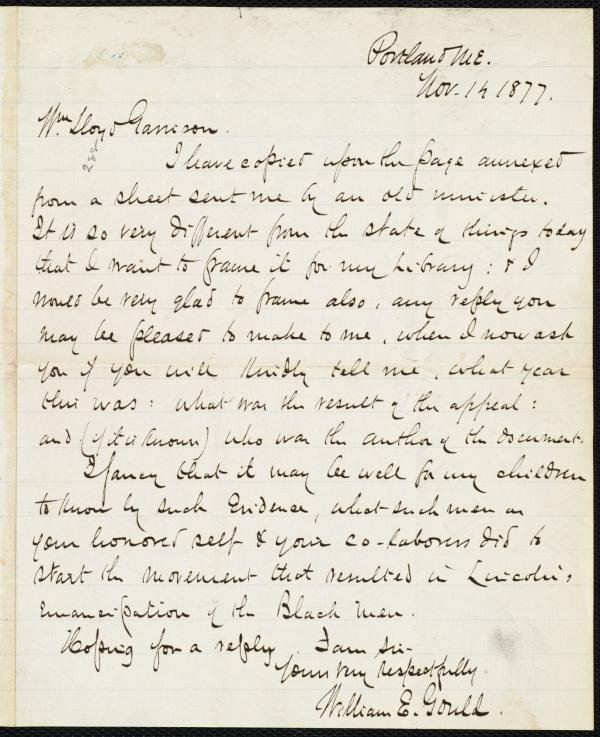 Portland ME.
Nov. 14 1877.
Wm Lloyd Garrison.
I have copied upon the page annexed
from a sheet sent me by an old minister.
It is so very different from the state of things today
that I want to frame it for my Library: & I
would be very glad to frame also, any reply you
may be pleased to make to me, when I now ask
you if you will kindly tell me, what year
this was: what was the result of the appeal:
and (if it is known) who was the author of the document.
I fancy that it may be well for my children
to know by such Evidence, what such men as
your honored self & your co-laborers did to
start the movement that resulted in Lincoln's
emancipation of the Black men.
Hoping for a reply. I am sir-
Yours very respectfully.
William E. Gould.